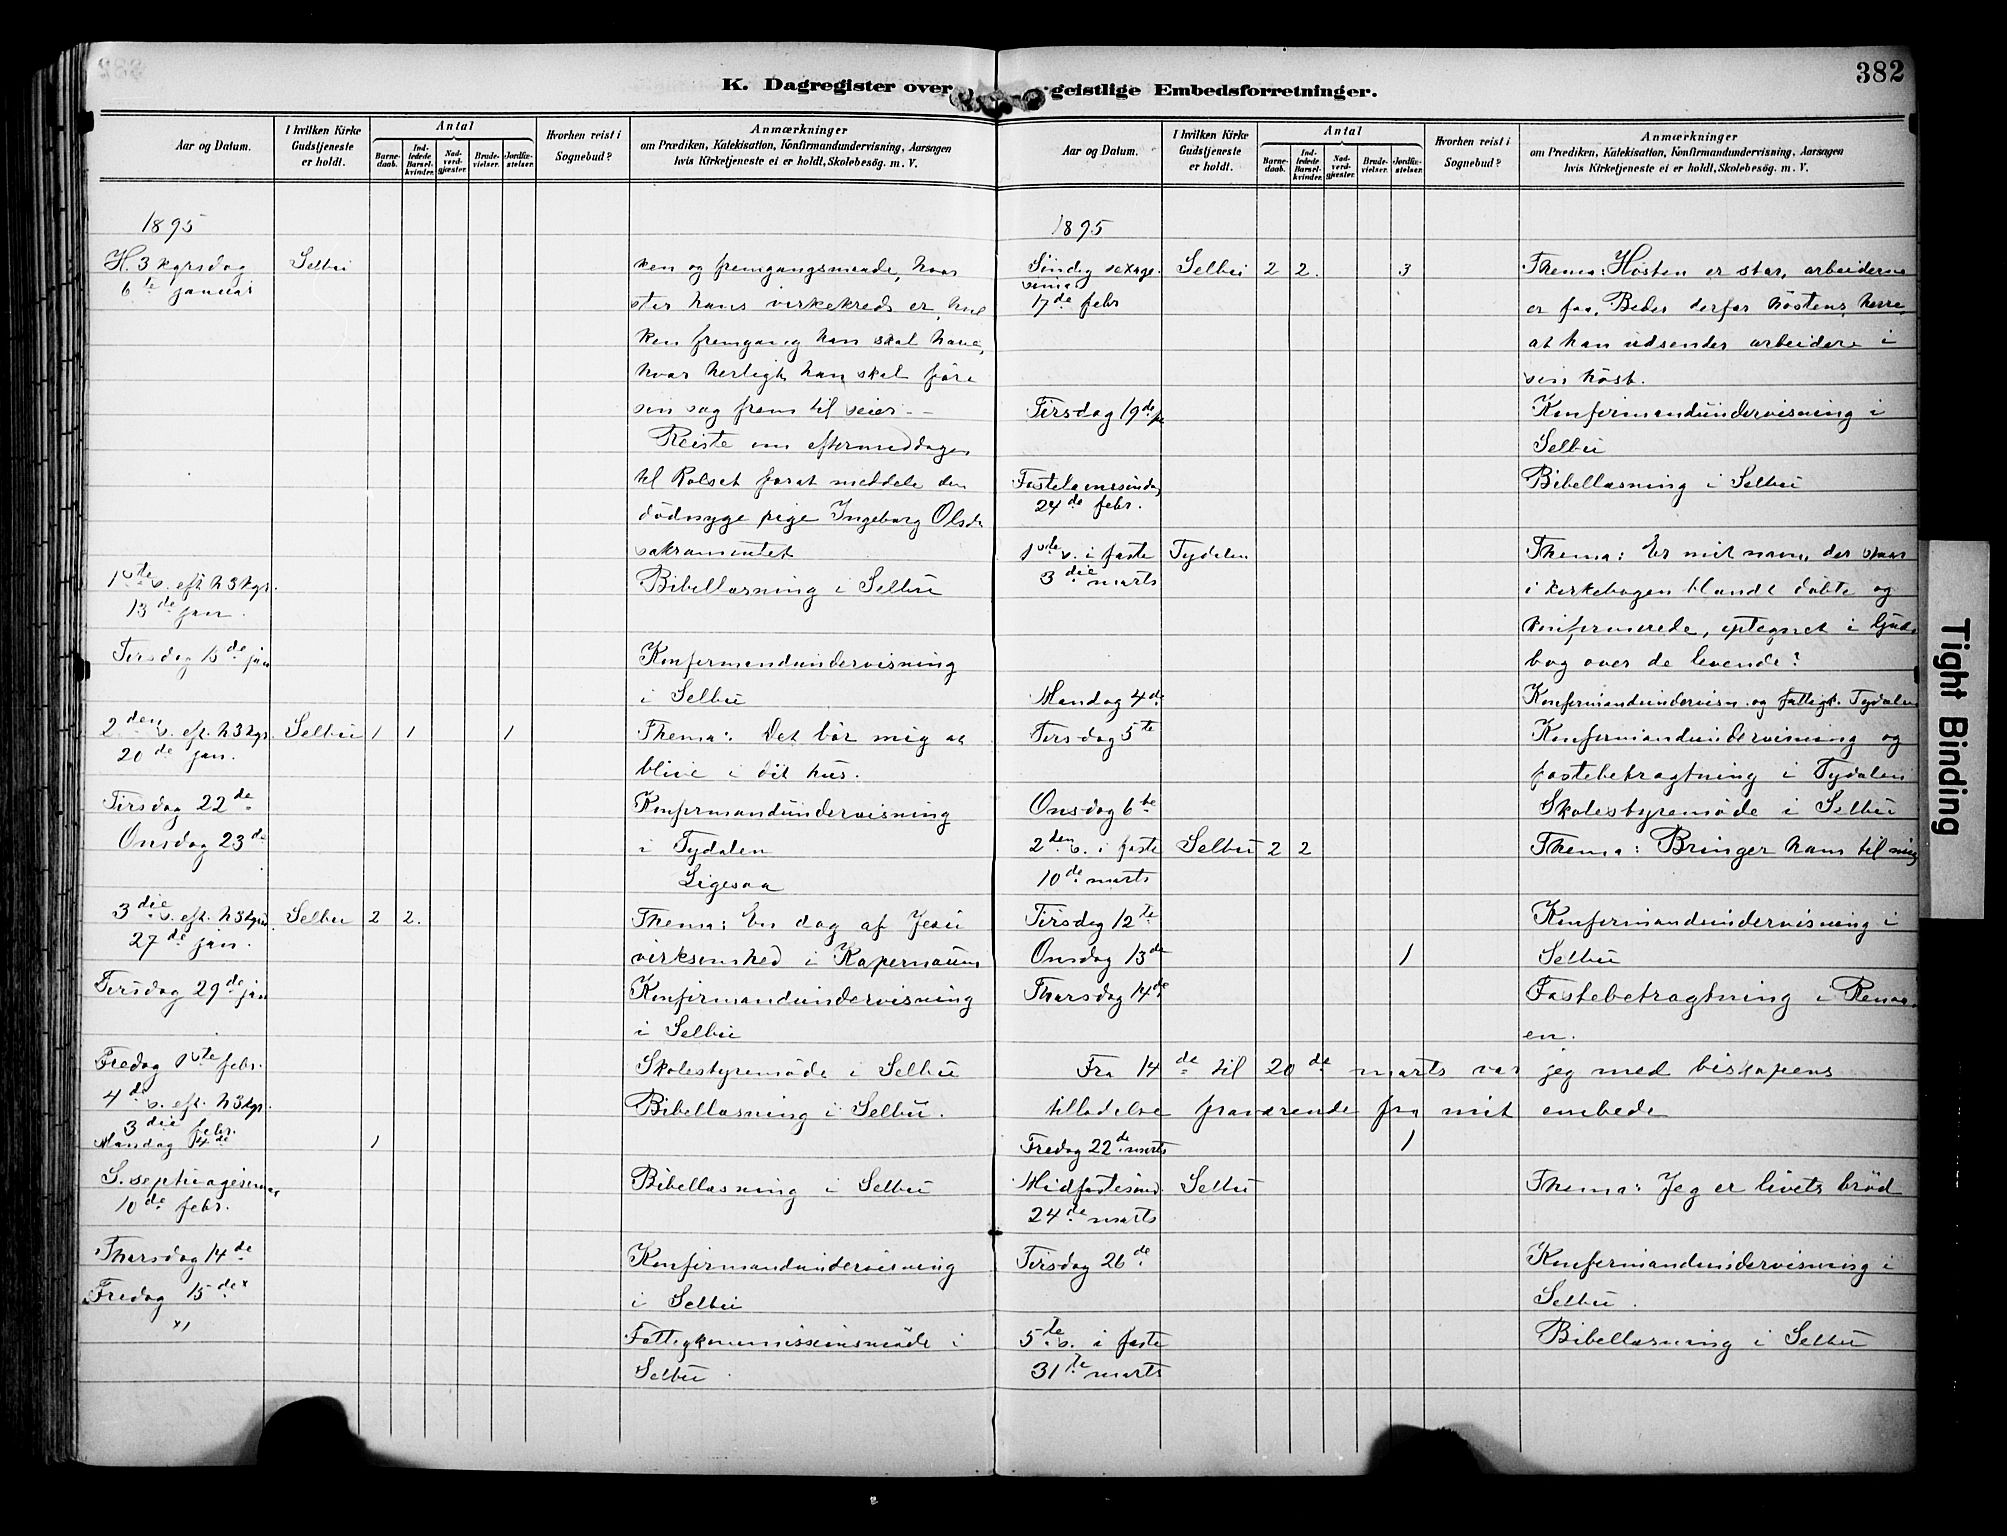 382
K. Dagregister over geistlige Embedsforretninger.
Aar og Datum.
I hvilken Kirke Gudstjeneste er holdt.
Antal
Barnedaab.
Indledede Barselkvinder.
Nadverdgjæster.
Brudevielser.
Jordfæstelser.
Hvorhen reist i Sognebud?
Anmærkninger
om Prædiken, Katekisation, Konfirmandundervisning, Aarsagen
hvis Kirketjeneste ei er holdt, Skolebesög. m. V.
1895
H. 3 kgrsdag Selbu ken og fremgangsmaade, hvor
6te januar stor hans virkekreds er, hvil
ken fremgang han skal have,
hvor herligt han skal føre
sin sag frem til seier.
Reiste om eftermeddagen
til Rolset forat meddele den
dødssyge pige Ingeborg Olsdr
sakramentet
1ste s. eft. h3kgr. Bibellæsning i Selbu
13de jan.
Tirsdag 15de jan Konfirmandundervisning
i Selbu
2den s. eft. h3kgr. Selbu 1 1 1 Thema: Det bør mig at
20de jan. blive i dit hus.
Tirsdag 22de Konfirmandundervisning
Onsdag 23de i Tydalen
Ligesaa
3die s. eft. h3kgr. Selbu 2 2. Thema: En dag af Jesu
27de jan. virksomhed i Kapernaum
Tirsdag 29de jan Konfirmandundervisning
i Selbu
Fredag 1ste febr. Skolestyremøde i Selbu
4de s. eft. h3kgr. Bibellæsning i Selbu.
3die febr.
Mandag 4de 1
S. septuagesima Bibellæsning i Selbu
10de febr.
Thorsdag 14de Konfirmandundervisning
Fredag 15de x i Selbu
x1 Fattigkommissionsmøde i
Selbu.
Aar og Datum.
I hvilken Kirke Gudstjeneste er holdt.
Antal
Barnedaab.
Indledede Barselkvinder.
Nadverdgjæster.
Brudevielser.
Jordfæstelser.
Hvorhen reist i Sognebud?
Anmærkninger
om Prædiken, Katekisation, Konfirmandundervisning, Aarsagen
hvis Kirketjeneste ei er holdt, Skolebesög. m. V.
1895
Søndag sexage- Selbu 2 2. 3 Thema: Høsten er stor, arbeiderne
sima er faa. Beder derfor høstens herre,
17de febr
at han udsender arbeidere i
sin høst.
Tirsdag 19de Konfirmandundervisning i
Selbu
Fastelavnssøndag Bibellæsning i Selbu
24de febr.
1ste s. i faste Tydalen Thema: Er mit navn, der staar
3die marts i kirkebogen blandt døbte og
konfirmerede, optegnet i Guds
bog over de levende?
Mandag 4de Konfirmandundervisn. og fattigk. Tydalen
Tirsdag 5te Konfirmandundervisning og
fastebetragtning i Tydalen
Onsdag 6te Skolestyremøde i Selbu
2den s. i faste Selbu 2 2 Thema: Bringer ham til mig
10de marts
Tirsdag 12te Konfirmandundervisning i
Onsdag 13de 1 Selbu
Thorsdag 14de Fastebetragtning i
en.
Fra 14de til 20de marts var jeg med biskopens
tilladelse fraværende fra mit embede
Fredag 22de marts 1
Midfastesønd. Selbu Thema: Jeg er livets brød
24de marts
Tirsdag 26de Konfirmandundervisning i
Selbu.
5te s. i faste Bibellæsning i Selbu
31te marts
Tight Binding